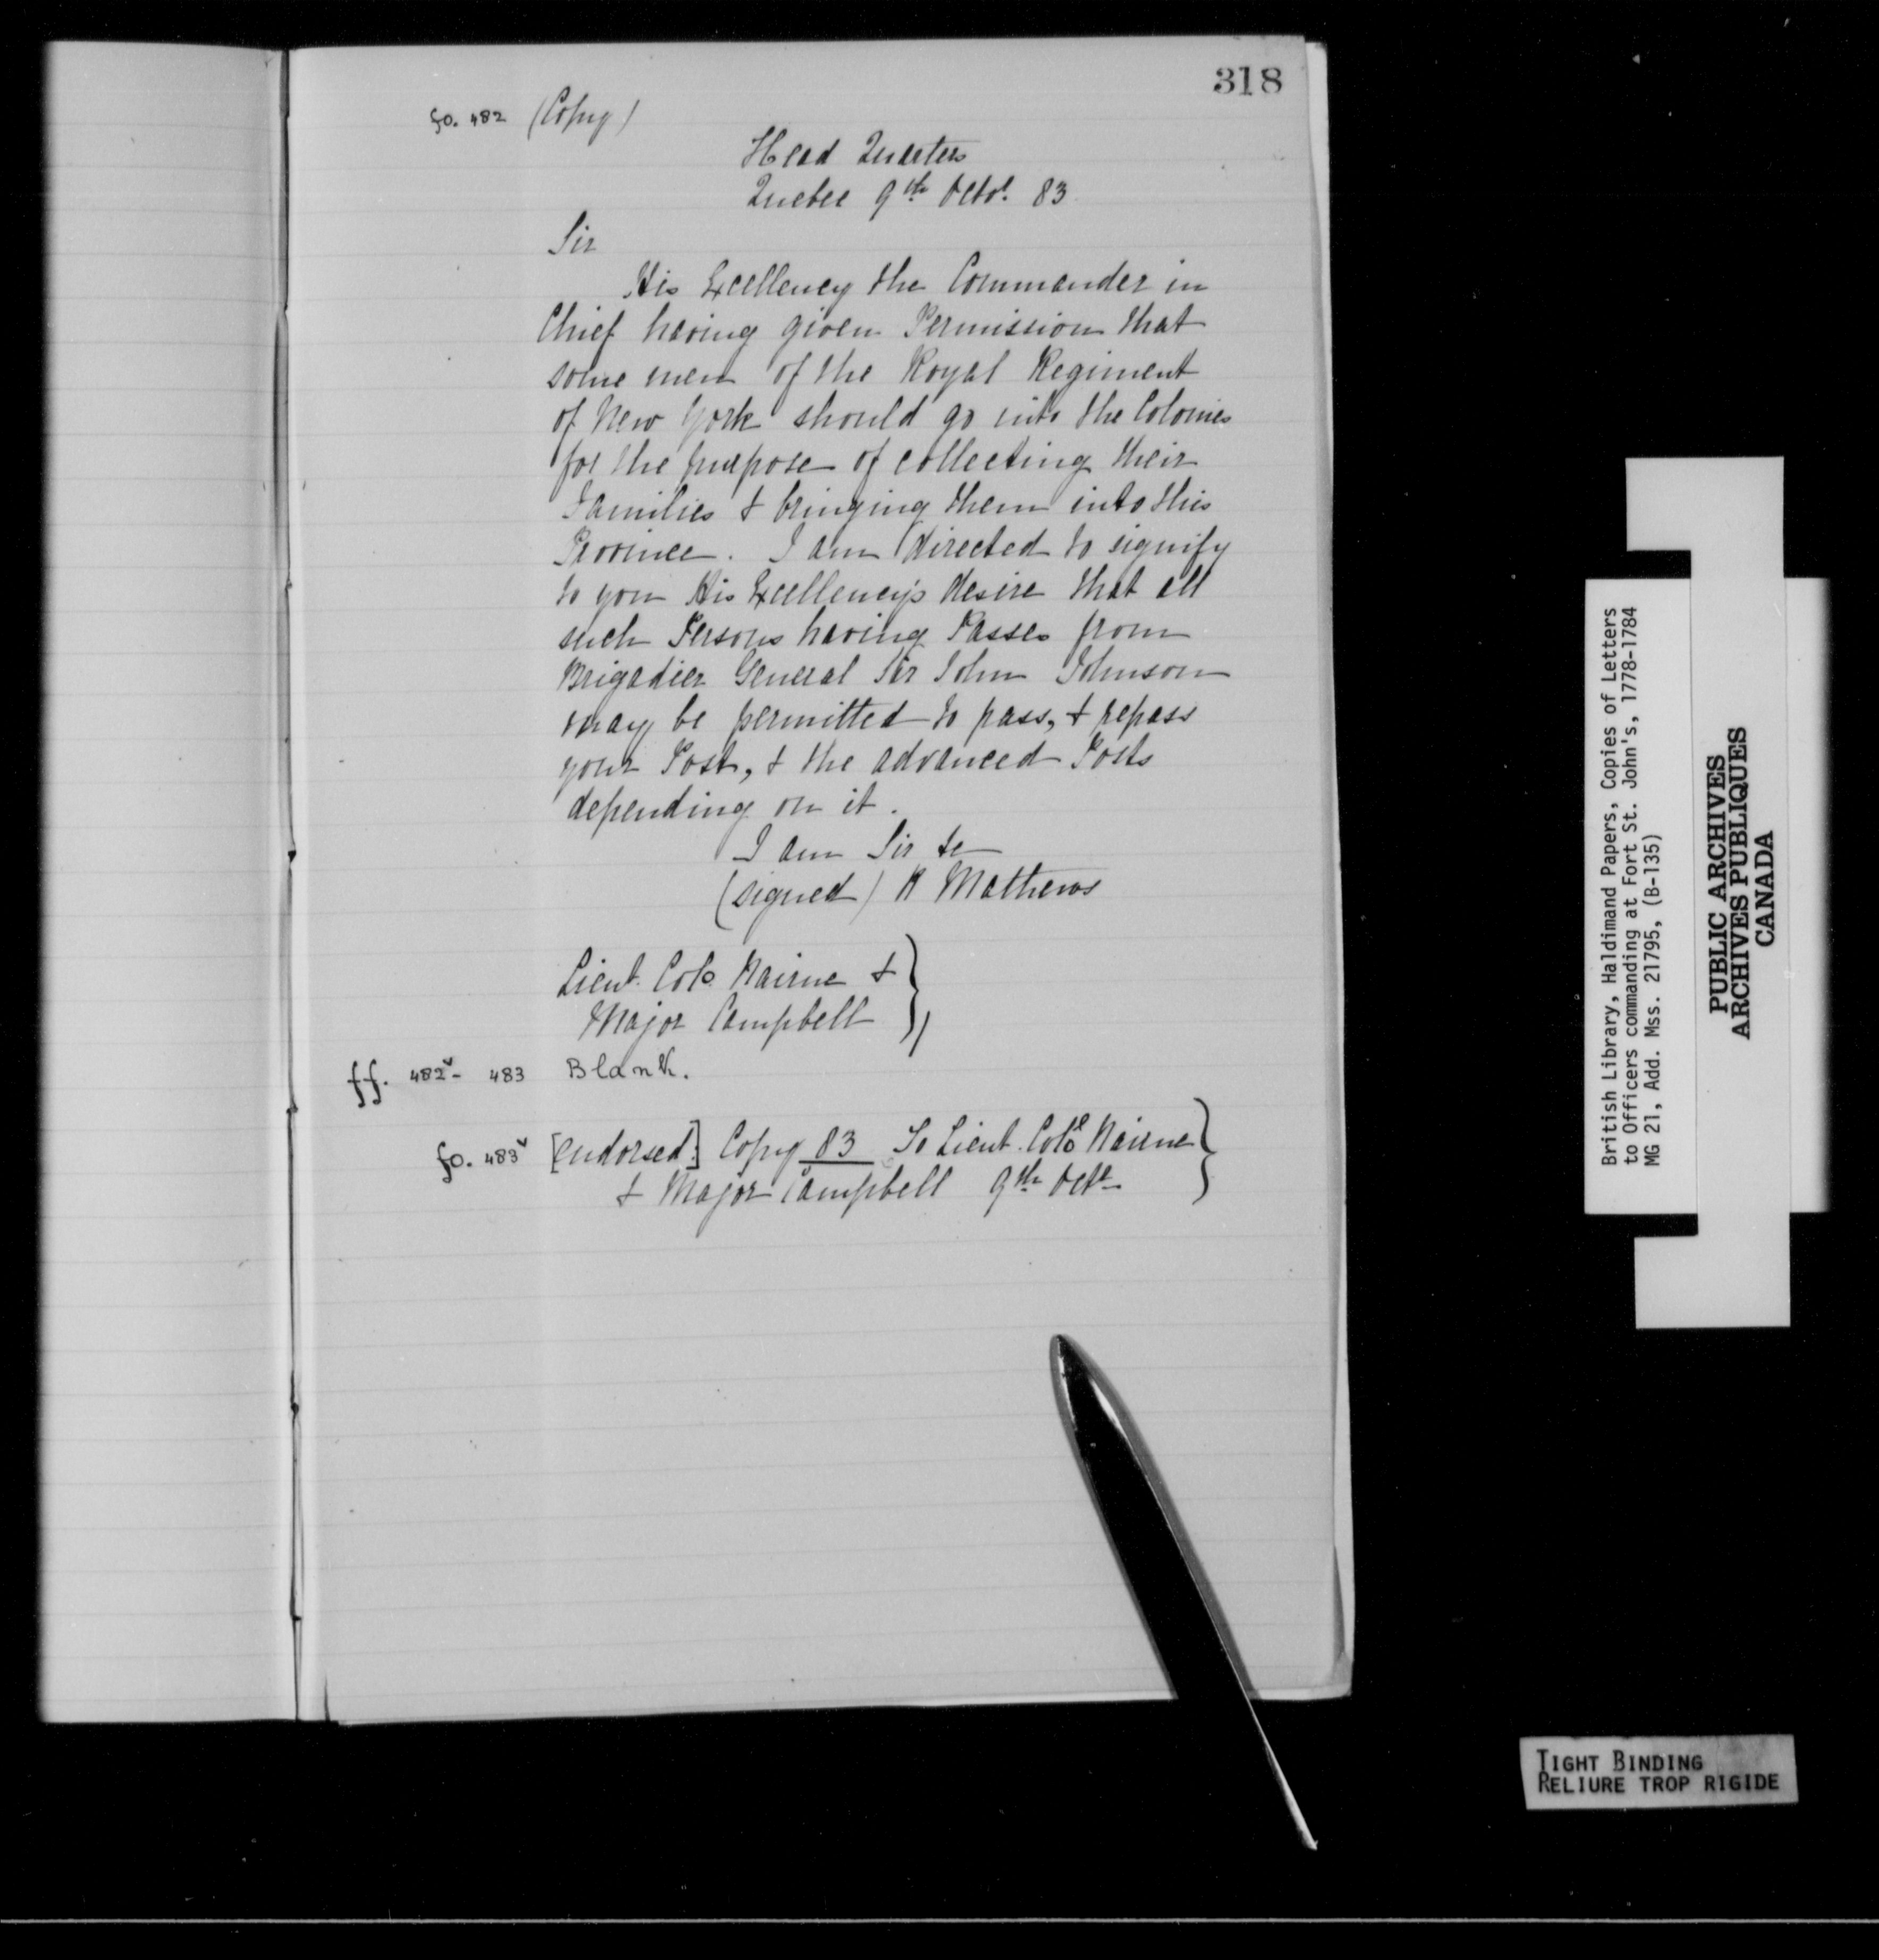 318
fo. 482 (Copy)
Head Quarters
Quebec 9th Octor. 83
Sir
His Excellency the Commander in
Chief having given Permission that
some men of the Royal Regiment
of New York should go into the Colonies
for the purpose of collecting their
Families & bringing them into this
Province. I am directed to signify
to you His Excellency's desire that all
such Persons having Passes from
Brigadier General Sir John Johnson
may be permitted to pass, & repass
your Post, & the advanced Posts
depending on it.
I am Sir &c
(signed) R Mathews
Lieut. Colo. Nairne & }
Major Campbell }
ff. 482v - 483 Blank.
fo. 483v [endorsed:] Copy 83 To Lieut. Colol Nairne }
& Major Campbell 9th Octr }
British Library, Haldimand Papers, Copies of Letters
to Officers commanding at Fort St. John's, 1778-1784
MG 21, Add. Mss. 21795, (B-135)
PUBLIC ARCHIVES
ARCHIVES PUBLIQUES
CANADA
TIGHT BINDING
RELIURE TROP RIGIDE